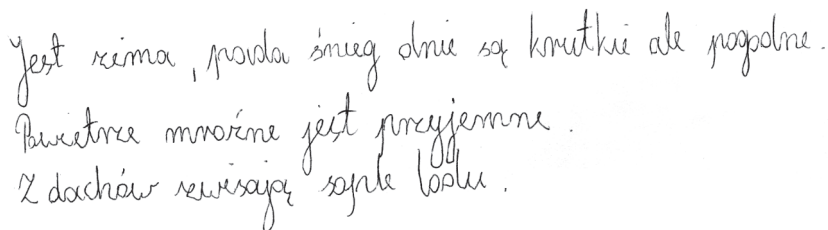 Jest zima, pada śnieg dnie są krutkie ale pogodne.
Powietrze mroźne jest przyjemne.
Z dachów zwisają sople lodu.